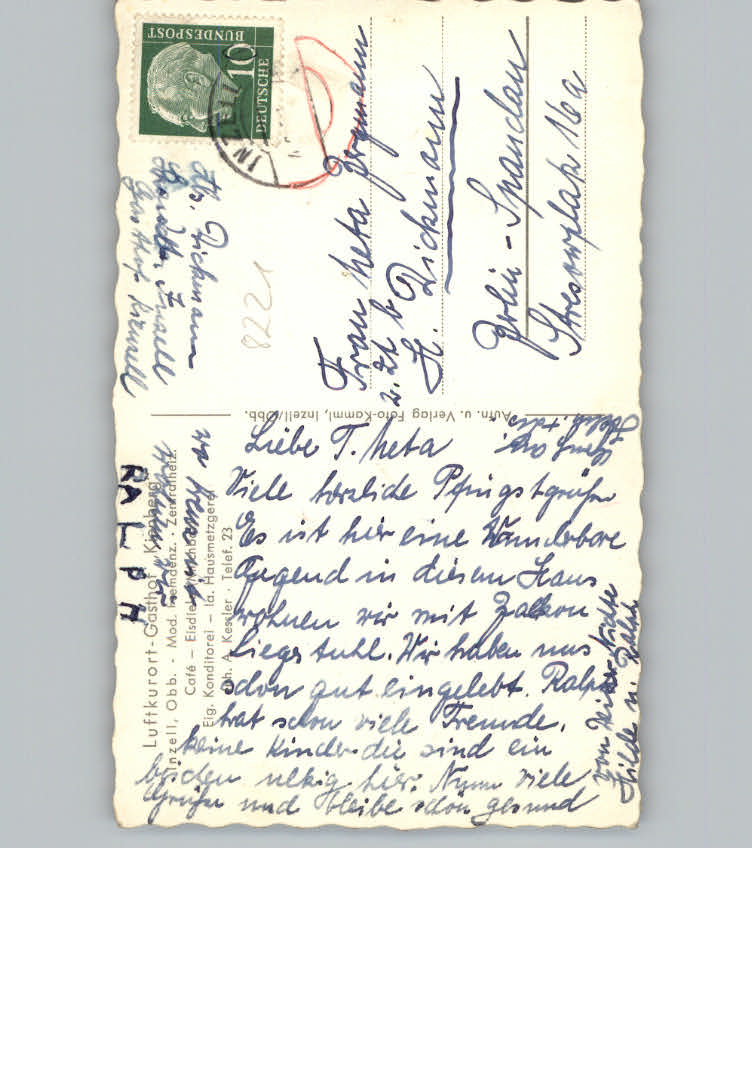 Luftkurort-Gasthof Kienberg
Inzell, Obb. · Mod. Fremdenz. · Zentralheiz.
Café – Eisdiele
Eig. Konditorei – la. Hausmetzgerei
A. Kessler · Telef. 23
RALPH
Liebe T. Meta
Viele herzliche Pfingstgrüße
Es ist hier eine Wunderbare
Gegend in diesem Haus
wohnen wir mit Balkon
Liegestuhl. Wir haben uns
schon gut eingelebt. Ralph
hat schon viele Freunde,
kleine Kinder die sind ein
bischen ulkig hier. Nunn viele
Grüße und bleibe schön gesund
von Deiner Nichte
Hilde u. Ralph
Aufn. u. Verlag Foto-Kamml, Inzell/Obb.
Abs. Dickmann
Inzell
Gasthof
8221
DEUTSCHE
BUNDESPOST
10
INZELL
Frau Meta Bergmann
z. Zt b
H. Dickmann
Berlin-Spandau
Stresowplatz 16a